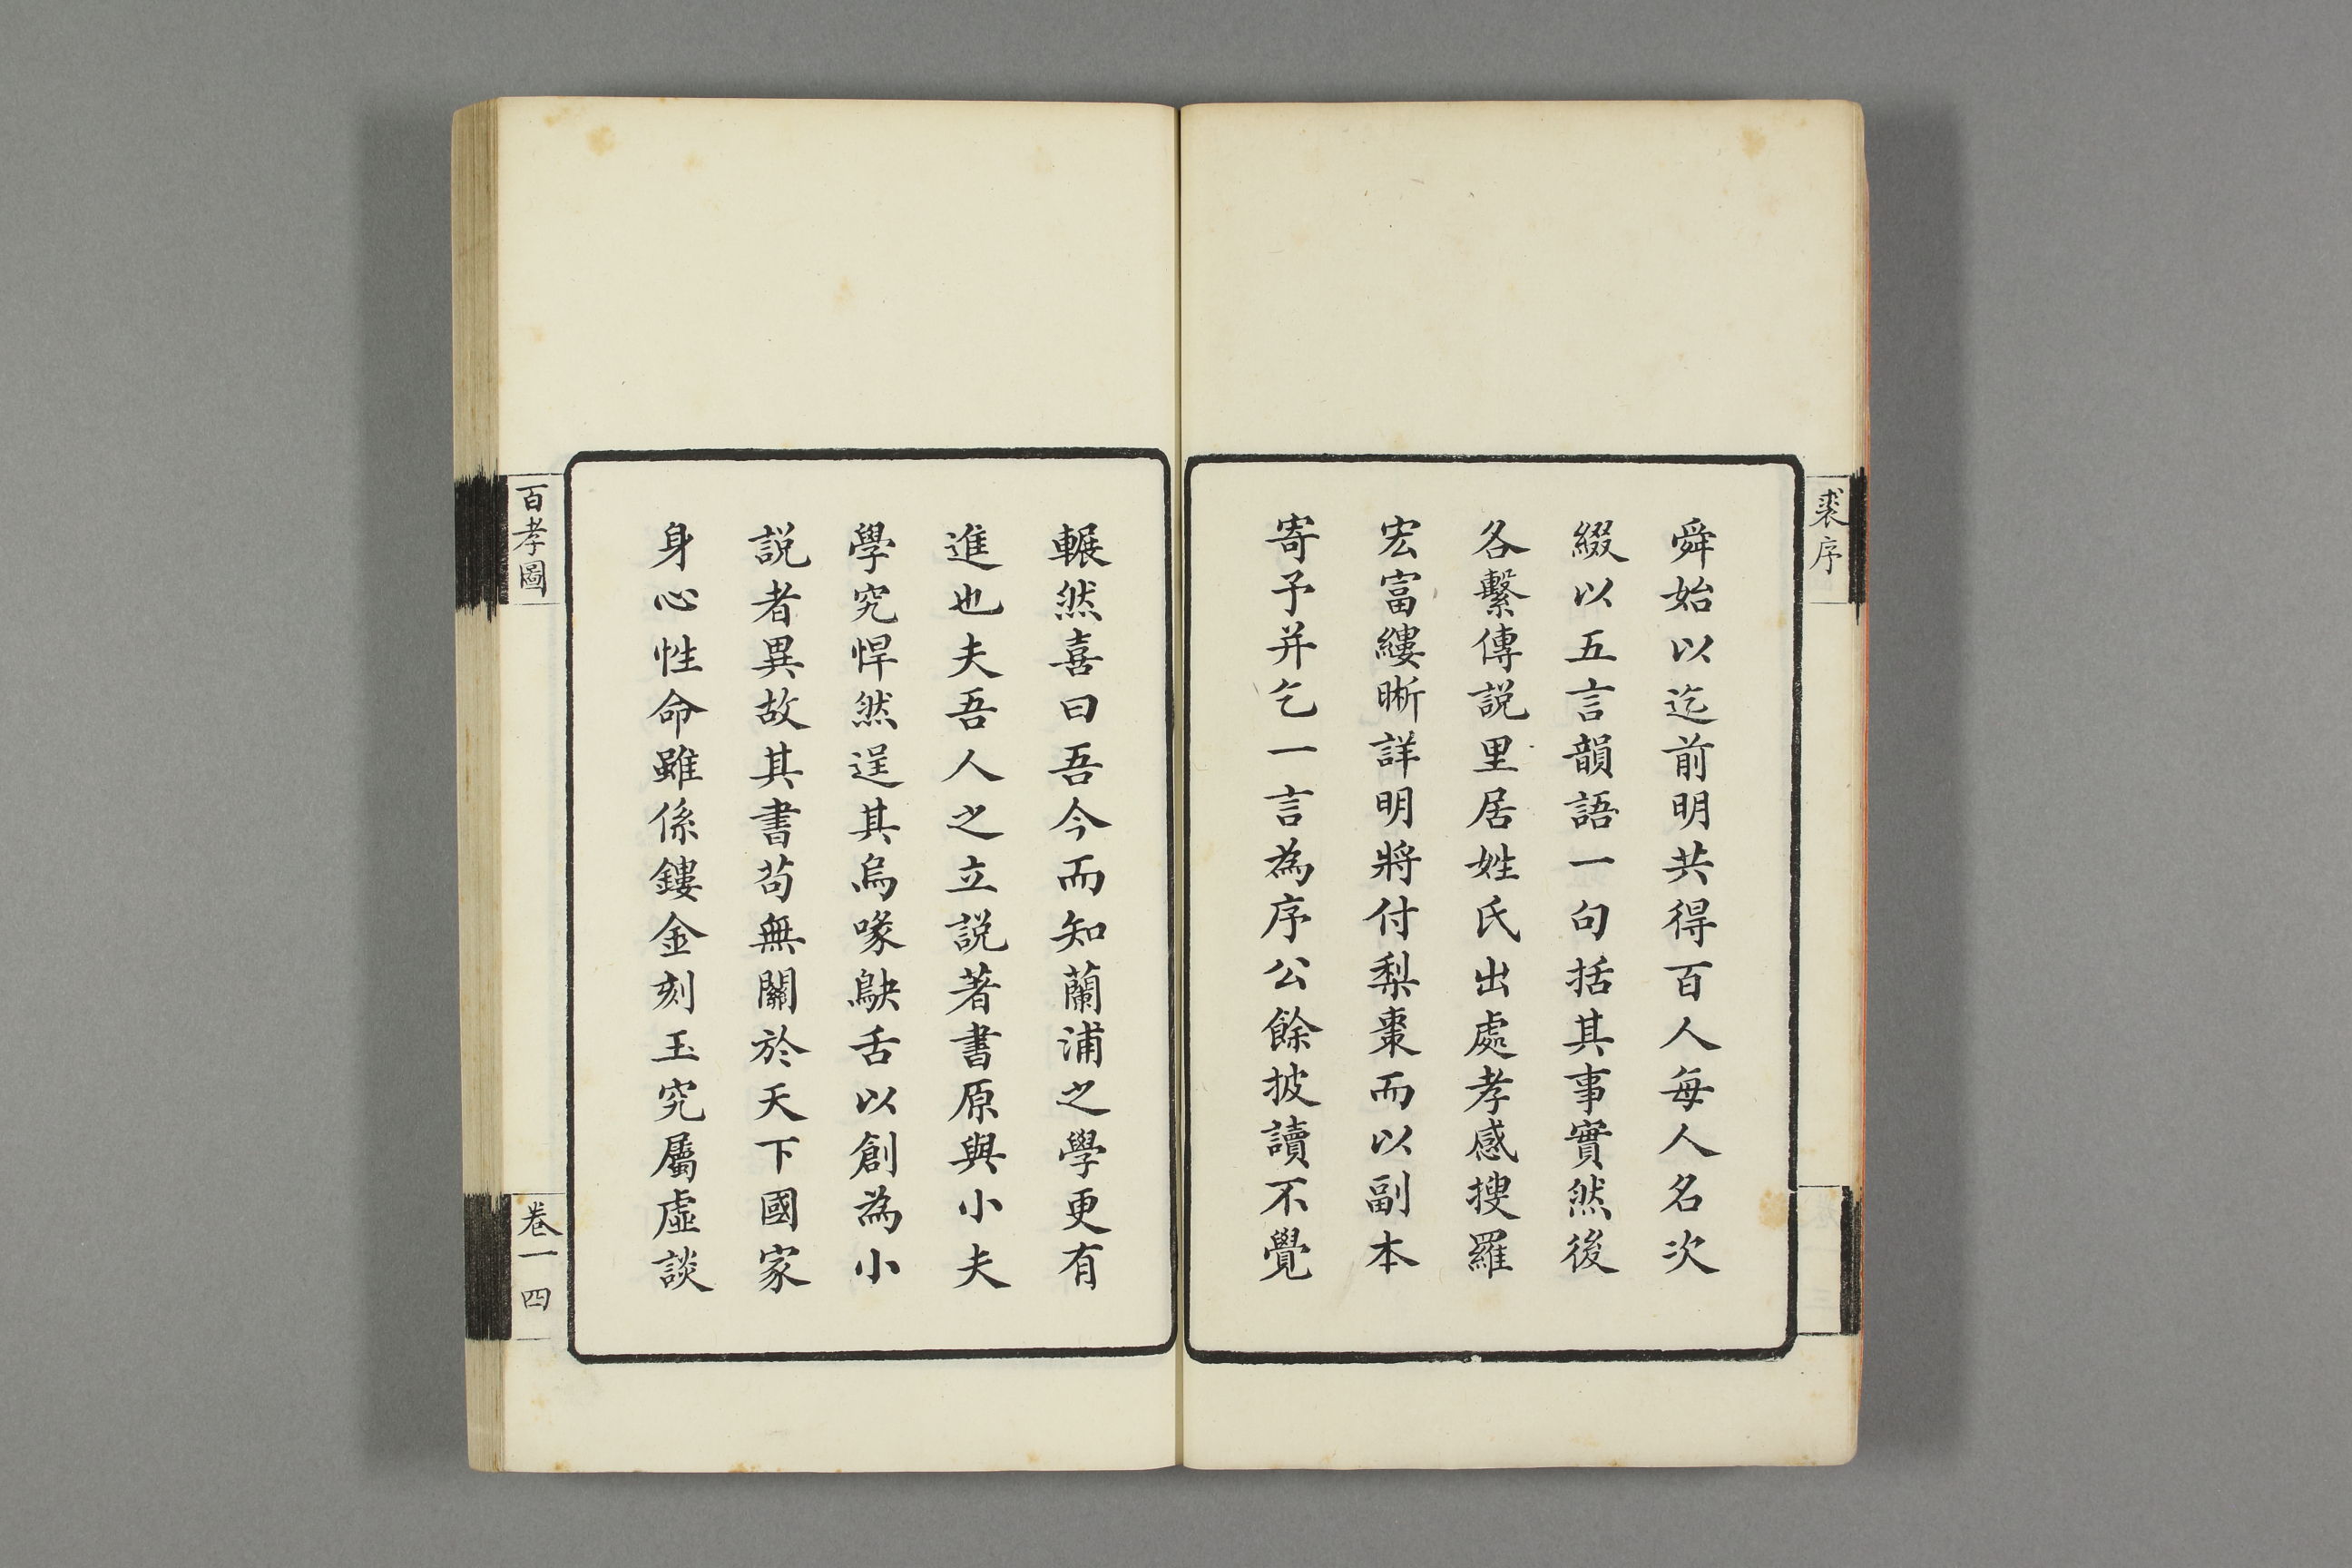 裘序
舜始以迄前明共得百人每人名次
綴以五言韻語一句括其事實然後
各繫傳説里居姓氏出處孝感搜羅
宏富縷晰詳明將付梨棗而以副本
寄予并乞一言為序公餘披讀不覺
輾然喜曰吾今而知蘭浦之學更有
進也夫吾人之立説著書原與小夫
學究悍然逞其烏喙鴃舌以創為小
説者異故其書苟無關於天下國家
身心性命雖係鏤金刻玉究屬虛談
百孝圖
卷一 四